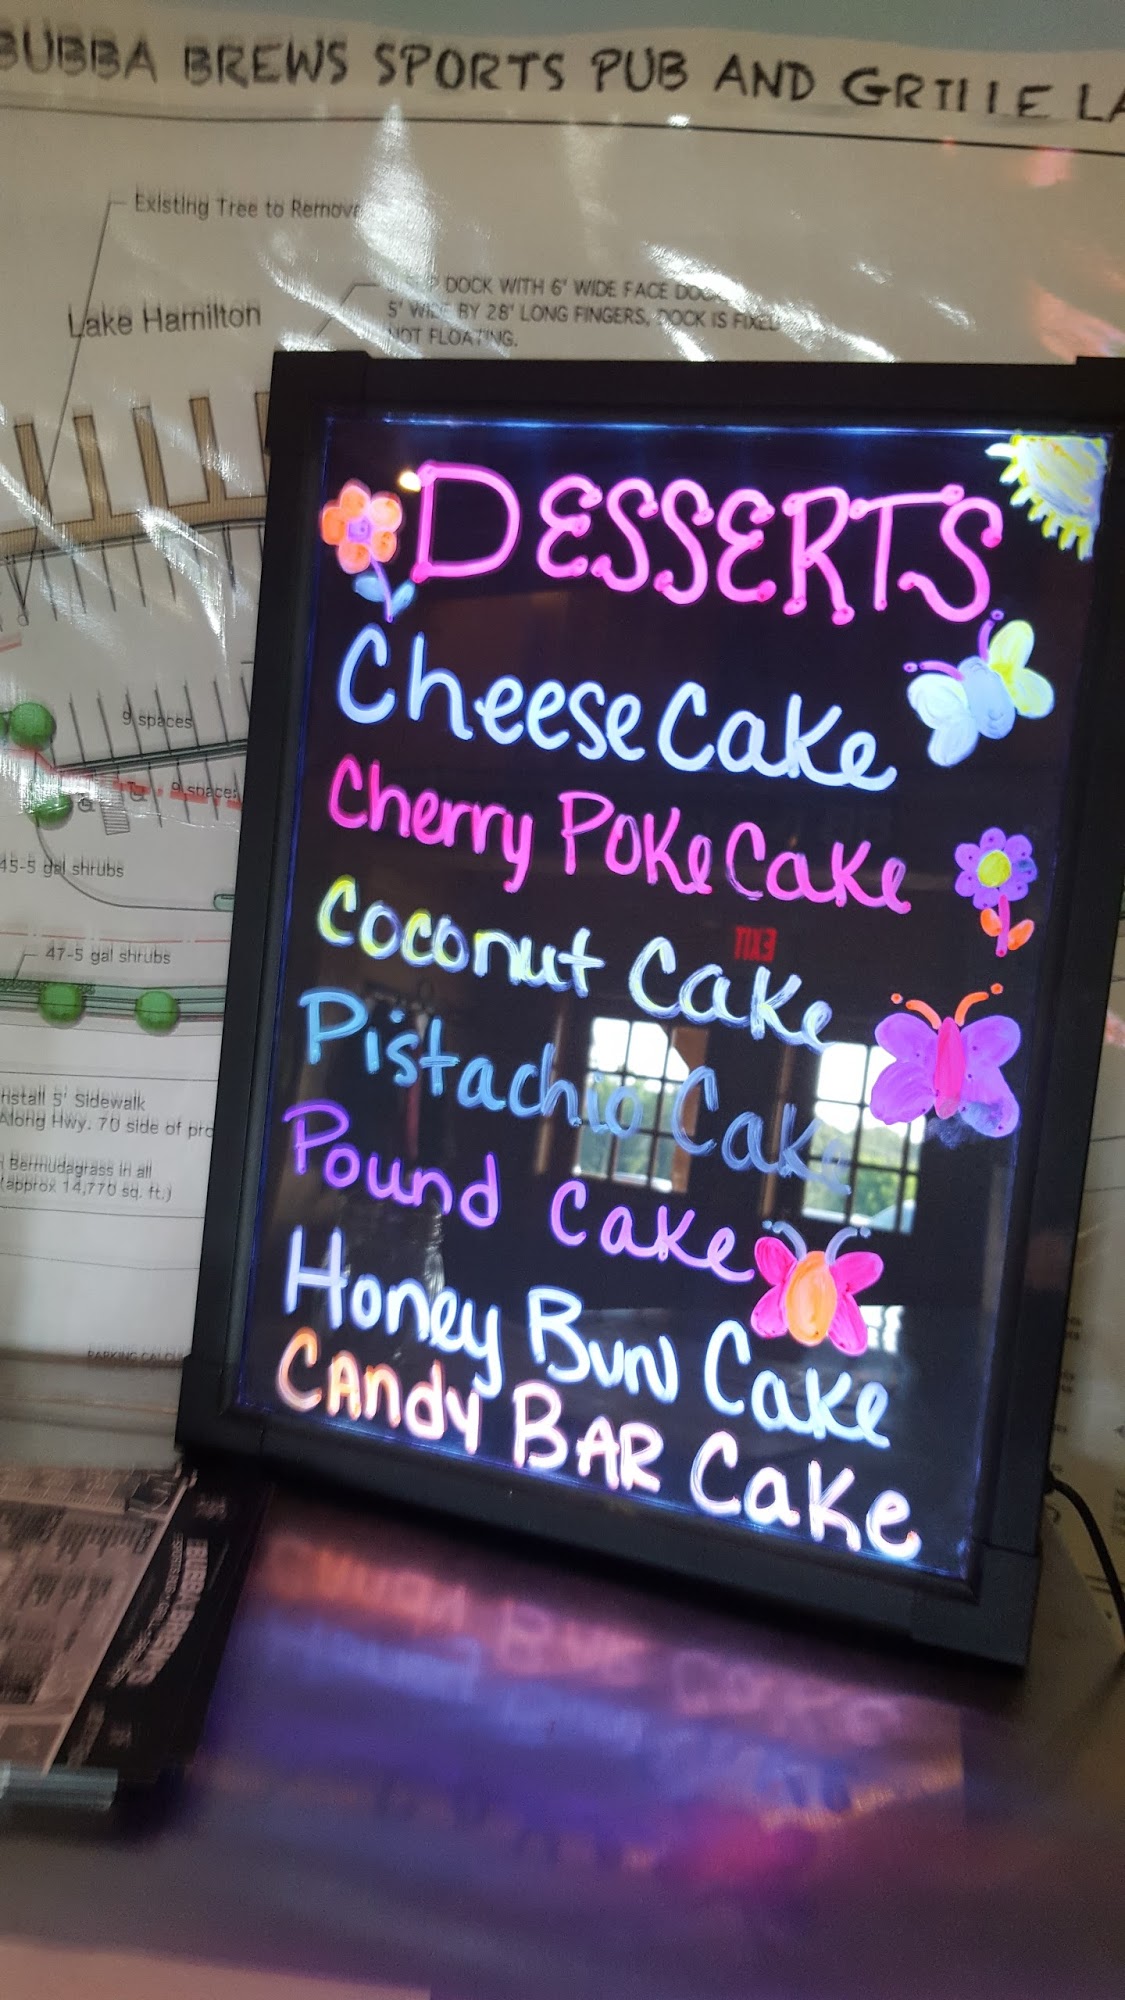 BUBBA BREWS SPORTS PUB AND GRILLE LA
Existing Tree to Remove
Lake Hamilton
DOCK WITH 6' WIDE FACE
5' WIDE BY 28' LONG FINGERS, DOCK IS FIXED
NOT FLOATING.
DESSERTS
CheeseCake
Cherry PokeCake
Coconut Cake
EXIT
Pistachio Cake
Pound Cake
Honey Bun Cake
CAndy BAR Cake
9 spaces
9 spaces
45-5 gal shrubs
47-5 gal shrubs
nstall 5' Sidewalk
Along Hwy. 70 side of pro
Bermudagrass in all
(approx 14,770 sq. ft.)